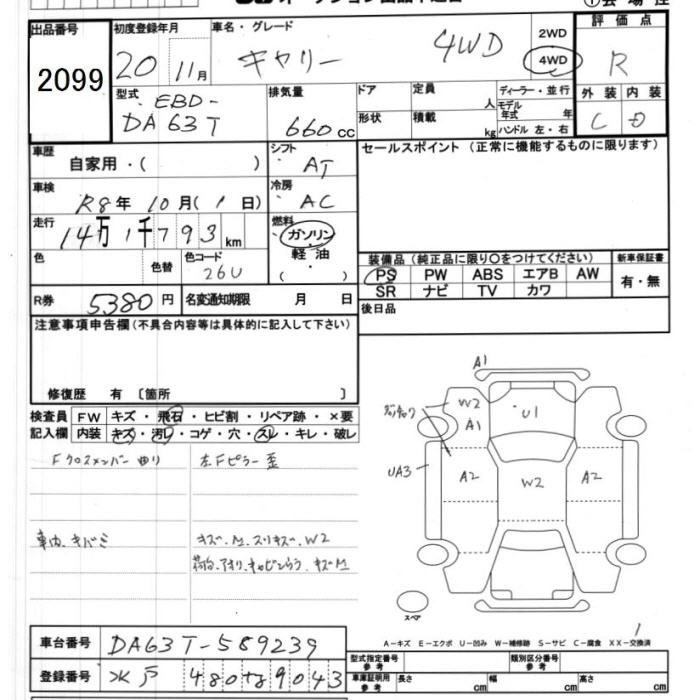 出品番号 初度登録年月 車名・グレード 2WD 評価点
2099 20 11月 キャリー 4WD 4WD R
型式 排気量 ドア 定員 人 ディーラー・並行 外装 内装
EBD-
DA63T 660cc 形状 積載 kg モデル年式 年 C D
ハンドル 左・右
車歴 シフト セールスポイント (正常に機能するものに限ります)
自家用・( ) AT
車検 冷房
R8年 10月( 1日) AC
走行 燃料
14万1千793km ガソリン
色 色替 色コード 軽油 装備品(純正品に限り○をつけてください) 新車保証書
26U ( ) PS PW ABS エアB AW 有・無
SR ナビ TV カワ
R券 5380円 名変通知期限 月 日 後日品
注意事項申告欄(不具合内容等は具体的に記入して下さい)
修復歴 有 〔箇所 〕
検査員 FW キズ・飛石・ヒビ割・リペア跡・×要
記入欄 内装 キズ・汚レ・コゲ・穴・スレ・キレ・破レ
Fクロスメンバー曲り 左Fピラー歪
車内、キバミ キズ、M、スリキズ、W2
荷台、アオリ、キャビンうら、キズM
A1
W2 U1
A1
UA3 A2 W2 A2
スペア
1
A−キズ E−エクボ U−凹み W−補修跡 S−サビ C−腐食 XX−交換済
車台番号 DA63T-589239
型式指定番号 参考 類別区分番号 参考
登録番号 水戸 480 9043
車庫証明用 参考 長さ cm 幅 cm 高さ cm